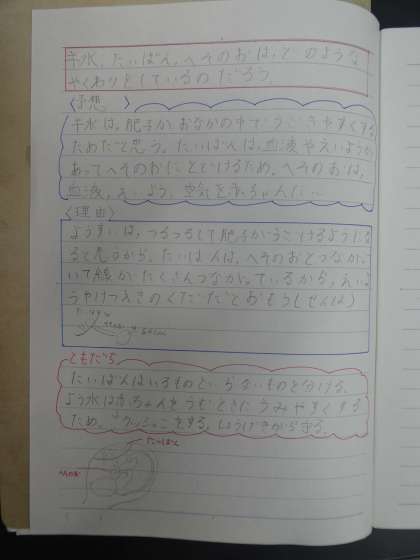 羊水、たいばん、へそのおは、どのような
やくわりをしているのだろう。
〈予想〉
羊水は、胎子がおなかの中でうごきやすくする
ためだと思う。たいばんは、血液やえいようが
あってへそのおにとどけるため。へそのおは、
血液、えいよう、空気を赤ちゃんに…
〈理由〉
ようすいは、つるつるして胎子がうごけるようにな
ると思うから。たいばんは、へそのおとつながって
いて線がたくさんつながっているから。
ともだち
たいばんはいるものといらないものを分ける。
よう水は赤ちゃんをうむときにうみやすくする
ため。クッションをする。しょうげきから守る。
たいばん
へそのお